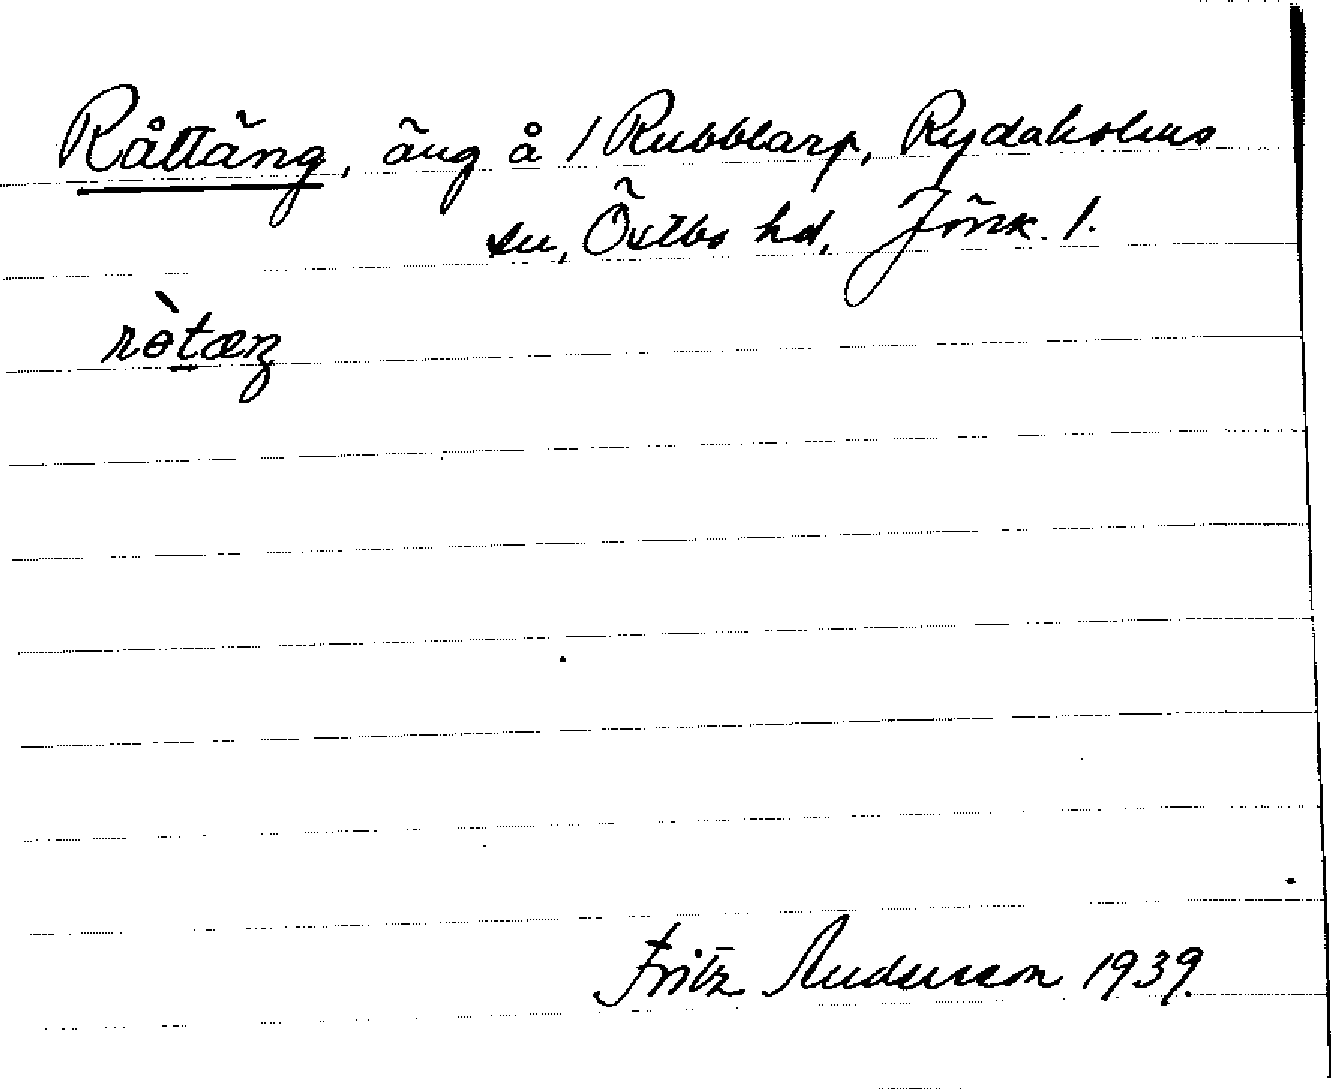 Råttäng, äng å 1 Rubblarp, Rydaholms
sn, Östbo hd, Jönk. l.
rɵ̀tæŋ
Fritz Anderson 1939.